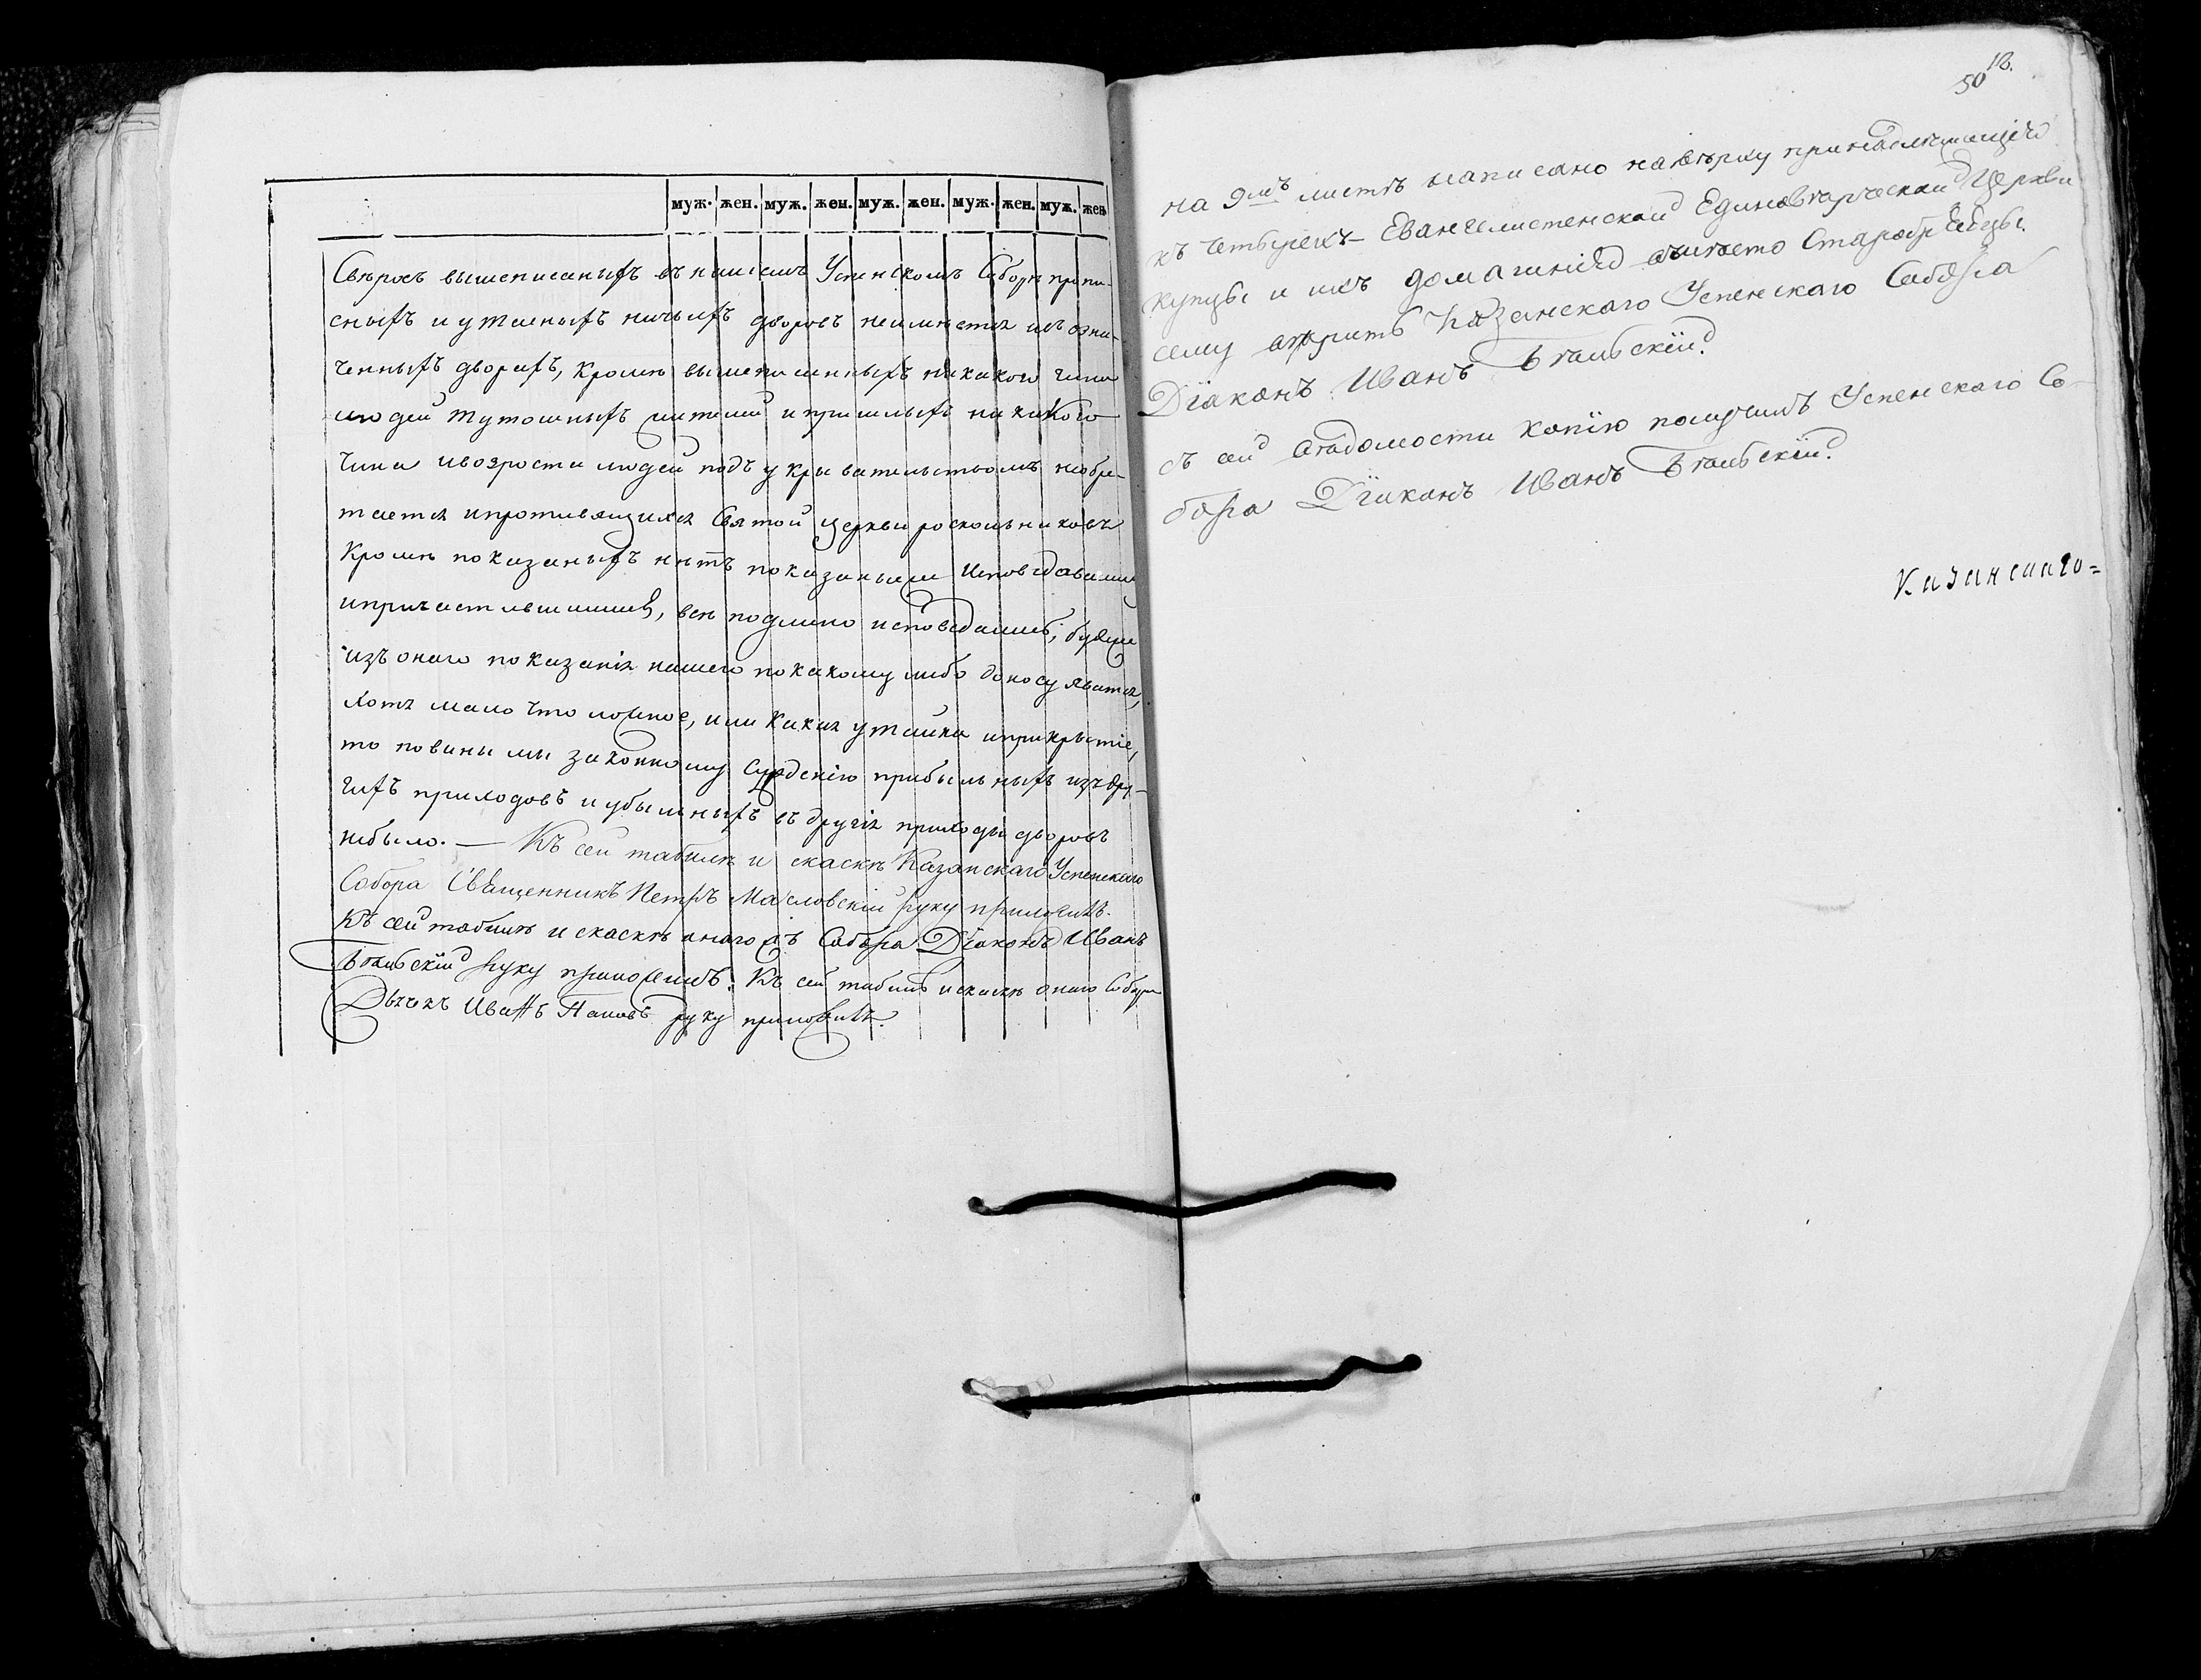 муж. жен. муж. жен. муж. жен. муж. жен. муж. жен
Сверхъ вышеписаныхъ въ нашемъ Успенскомъ Соборѣ припи-
сныхъ и утаеныхъ ничьихъ дворовъ неимѣется ивъ озна-
ченныхъ дворахъ, кромѣ вышеписанныхъ никакого чина
людей тутошныхъ жителей и пришлыхъ никакого
чина ивозраста людей подъ укрывательствомъ необре-
тается ипротивящихся Святой церкви роскольниковъ
Кромѣ показаныхъ нѣтъ показаныеже исповедавшими
ипричастившимися, всѣ подлино исповедались; будеже
изъ онаго показанія нашего покакому либо доносу явится,
хотя мало что ложное, или какая утайка иприкрытіе,
то повины мы законному сужденію прибыльныхъ изъ дру-
гихъ приходовъ и убыльныхъ въ другія приходы дворовъ
небыло. — Къ сей табелѣ и скаскѣ Казанскаго Успенскаго
Собора Священникъ Петръ Масловскій руку приложилъ.
Къ сей табелѣ и скаскѣ онаго жъ Собора Дїаконъ Иванъ
Бѣльскїй руку приложилъ. Къ сей табелѣ искаскѣ онаго Собора
Дьячекъ Иванъ Поповъ руку приложилъ.
50 12.
на 9мъ листѣ написано на верху принадлежащїе
къ четырехъ-Евангелистенской Единоверческой Церкви
купцы и ихъ домашнїе вместо Старобрядцы.
сему верить Казанскаго Успенскаго Собора
Дїаконъ Иванъ Бѣльскїй.
съ сей ведомости копїю получилъ Успенскаго Со-
бора Дїаконъ Иванъ Бѣльскїй.
Казанскаго=